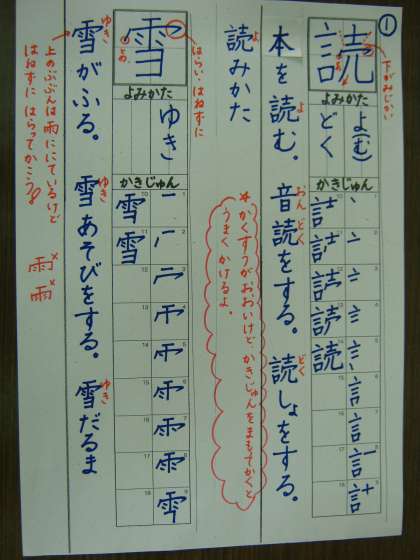 ①
読
下がみじかい
とめ
よみかた
よ(む)
どく
かきじゅん
本を読む。音読をする。読しょをする。
よ
おん どく
どく
読みかた
よ
*かくすうがおおいけど、かきじゅんをまもってかくと
うまくかけるよ。
雪
はらい・はねずに
とめ
よみかた
ゆき
かきじゅん
雪がふる。雪あそびをする。雪だるま
ゆき
ゆき
ゆき
上のぶぶんは雨ににているけど
はねずにはらってかこう!
雨 ×
雨 ×